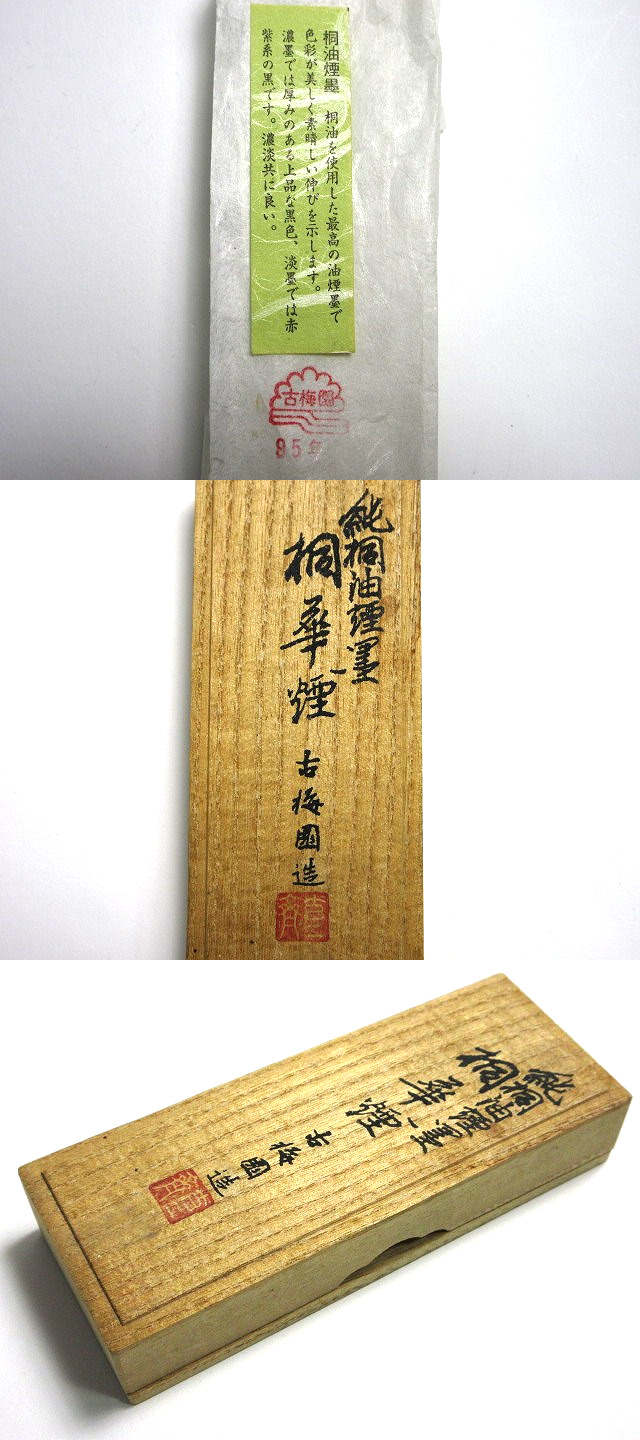 桐油煙墨 桐油を使用した最高の油煙墨で
色彩が美しく素晴しい伸びを示します。
濃墨では厚みのある上品な黒色、淡墨では赤
紫系の黒です。濃淡共に良い。
古梅園
95年
純桐油煙墨
桐華煙
古梅園造
純桐油煙墨
桐華煙
古梅園造